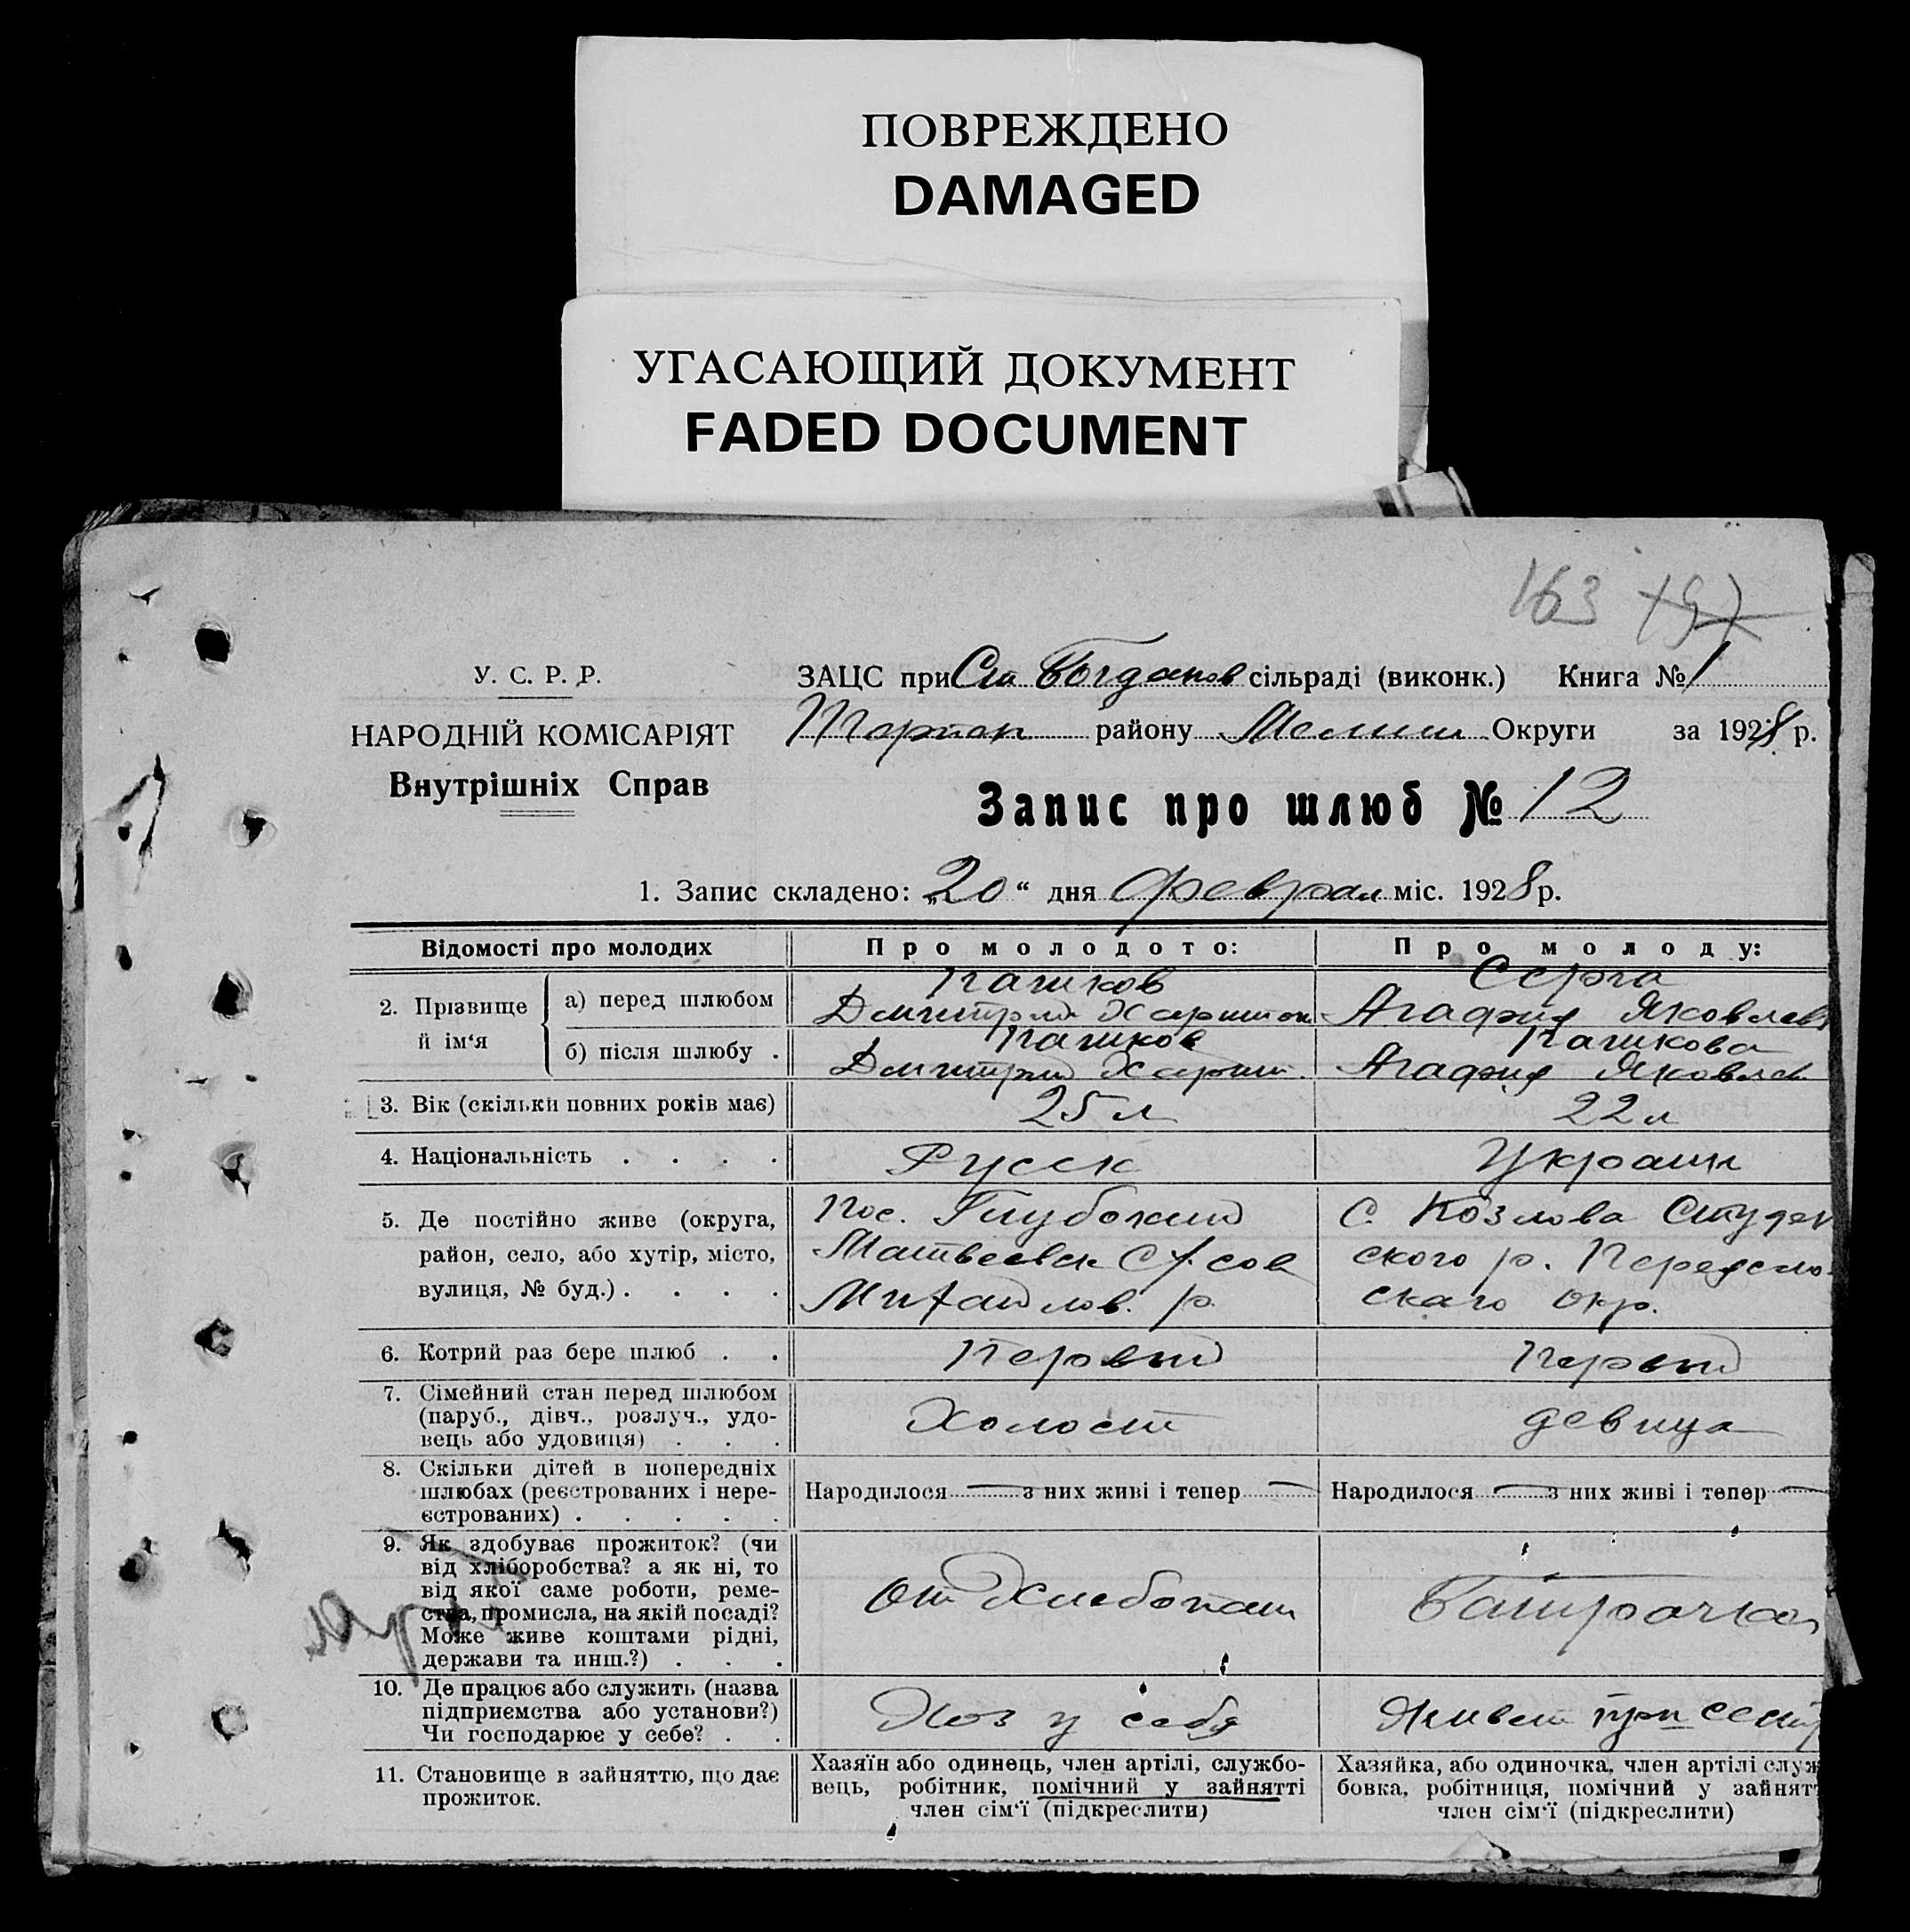 ПОВРЕЖДЕНО
DAMAGED
УГАСАЮЩИЙ ДОКУМЕНТ
FADED DOCUMENT
163 197
У. С. Р. Р.
НАРОДНІЙ КОМІСАРІЯТ
Внутрішніх Справ
ЗАЦС при Ст Богданов сільраді (виконк.) Книга № 1
району Мелит Округи за 1928 р.
Запис про шлюб № 12
1. Запис складено: „20“ дня Феврал міс. 1928 р.
Відомості про молодих Про молодого: Про молоду:
2. Прізвище й ім‘я
а) перед шлюбом Пашков Серга
Дмитрий Харитон Агафия Яковлев
б) після шлюбу . Пашков Пашкова
Дмитрий Харит. Агафия Яковлев
3. Вік (скільки повних років має) 25 л 22 л
4. Національність . . . . Русск Украин
5. Де постійно живе (округа, Пос. Глубокий С. Козлова Студен
район, село, або хутір, місто, Матвеевск С/сов ского р. Переясло
вулиця, № буд.) . . . . Михайлов. р. скаго окр.
6. Котрий раз бере шлюб . . Первый Первый
7. Сімейний стан перед шлюбом
(паруб., дівч., розлуч., удо-
вець або удовиця) . . . Холост девица
8. Скільки дітей в попередніх
шлюбах (реєстрованих і нере-
єстрованих) . . . . .
Народилося — з них живі і тепер — Народилося — з них живі і тепер —
9. Як здобуває прожиток? (чи
від хліборобства? а як ні, то
від якої саме роботи, реме-
ства, промисла, на якій посаді?
Може живе коштами рідні,
держави та инш.?) . . .
От Хлебопаш Батрачка
10. Де працює або служить (назва
підприємства або установи?)
Чи господарює у себе? . .
Хоз у себя Живет при сестр
11. Становище в зайняттю, що дає
прожиток.
Хазяїн або одинець, член артілі, службо-
вець, робітник, помічний у зайнятті
член сім‘ї (підкреслити)
Хазяйка, або одиночка, член артілі служ
бовка, робітниця, помічний у зайнят
член сім‘ї (підкреслити)